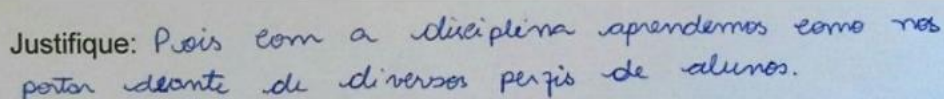 Justifique: Pois com a disciplina aprendemos como nos
portar deante de diversos perfis de alunos.